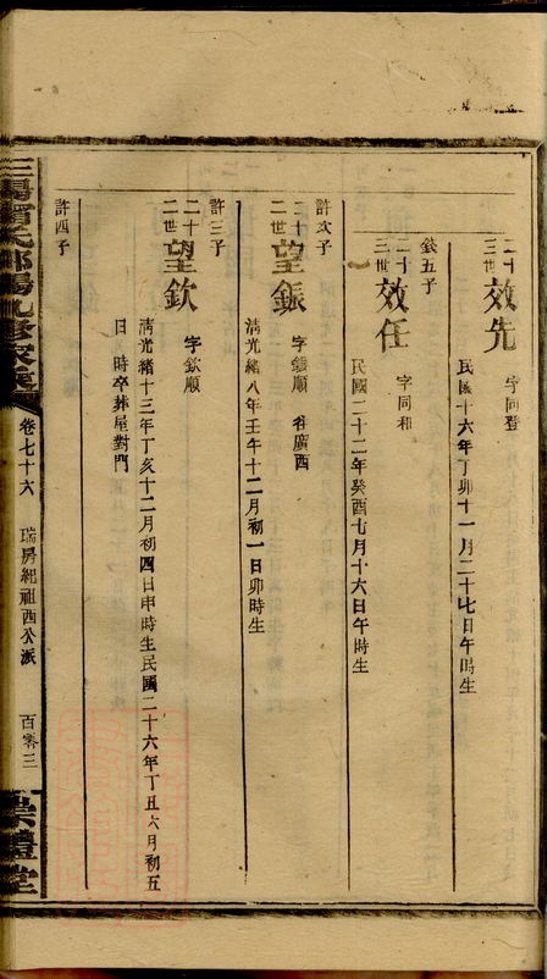 二十三世
效先
字同登
民國十六年丁卯十一月二十七日午時生
錢五子
二十三世
效任
字同和
民國二十二年癸酉七月十六日午時生
許次子
二十二世
望鋠
字鋠順 谷廣西
清光緒八年壬午十二月初一日卯時生
許三子
二十二世
望欽
字欽順
清光緒十三年丁亥十二月初四日申時生民國二十六年丁丑六月初五
日 時卒葬屋對門
許四子
卷七十六
瑞房紀祖西公派
百零三
崇禮堂